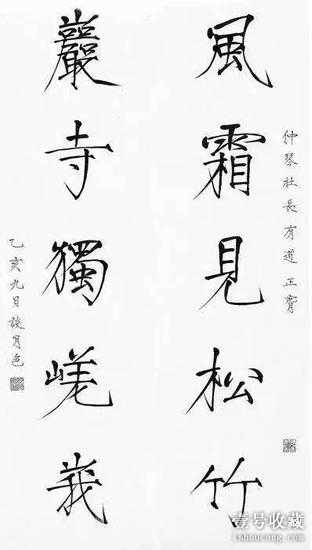 仲琴社長有道正
風霜見松竹
巖寺獨嵯峩
乙亥九月談月色
壹号收藏
1shoucang.com